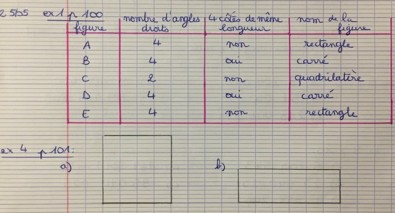 25b5 ex1 p 100
figure | nombre d'angles droits | 4 côtés de même longueur | nom de la figure
A | 4 | non | rectangle
B | 4 | oui | carré
C | 2 | non | quadrilatère
D | 4 | oui | carré
E | 4 | non | rectangle
ex 4 p 101:
a) b)